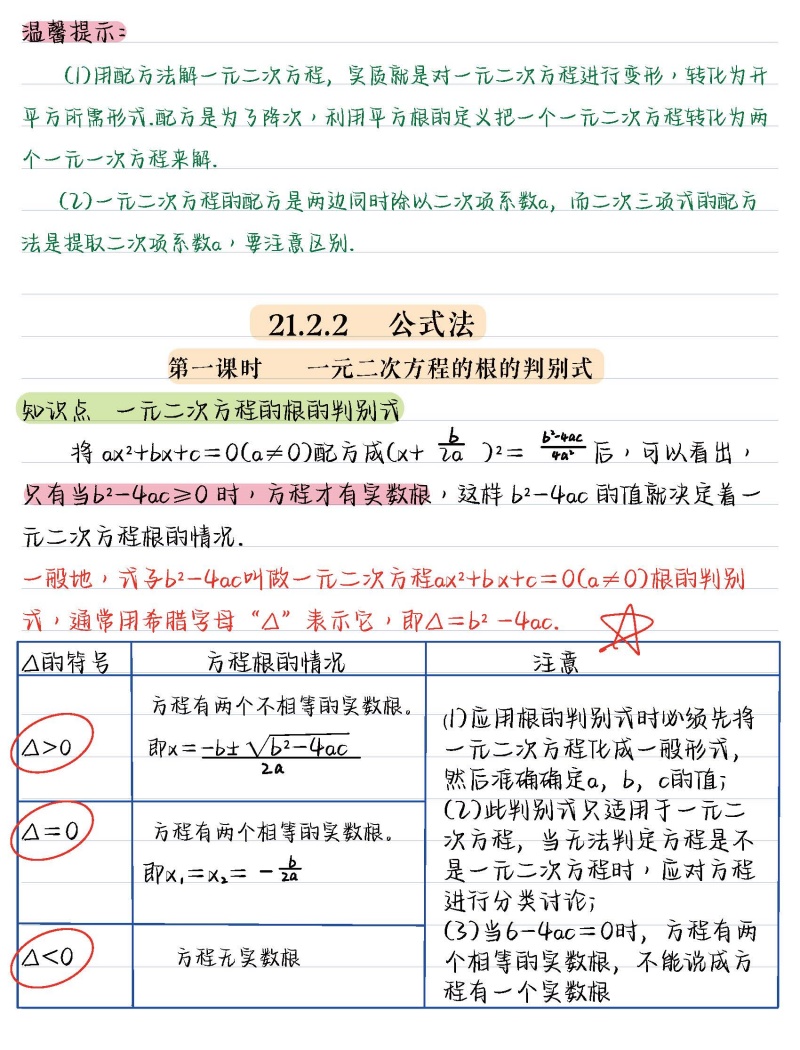 温馨提示:
(1)用配方法解一元二次方程, 实质就是对一元二次方程进行变形，转化为开
平方所需形式.配方是为了降次，利用平方根的定义把一个一元二次方程转化为两
个一元一次方程来解.
(2)一元二次方程的配方是两边同时除以二次项系数a, 而二次三项式的配方
法是提取二次项系数a，要注意区别.
21.2.2 公式法
第一课时 一元二次方程的根的判别式
知识点 一元二次方程的根的判别式
将 ax²+bx+c=0(a≠0)配方成(x+ b/2a )²= b²-4ac/4a² 后，可以看出，
只有当b²-4ac≥0 时，方程才有实数根，这样 b²-4ac 的值就决定着一
元二次方程根的情况.
一般地，式子b²-4ac叫做一元二次方程ax²+bx+c=0(a≠0)根的判别
式，通常用希腊字母“△”表示它，即△=b²-4ac.
△的符号 方程根的情况 注意
△>0
方程有两个不相等的实数根。
即x=-b±√b²-4ac/2a
△=0
方程有两个相等的实数根。
即x₁=x₂= -b/2a
△<0
方程无实数根
(1)应用根的判别式时必须先将
一元二次方程化成一般形式,
然后准确确定a, b, c的值;
(2)此判别式只适用于一元二
次方程, 当无法判定方程是不
是一元二次方程时，应对方程
进行分类讨论;
(3)当6-4ac=0时, 方程有两
个相等的实数根, 不能说成方
程有一个实数根